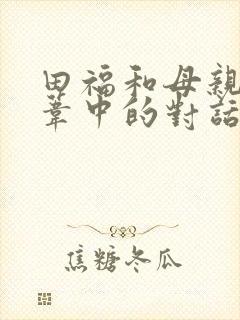 田福和母親
葦中的對話
焦糖冬瓜